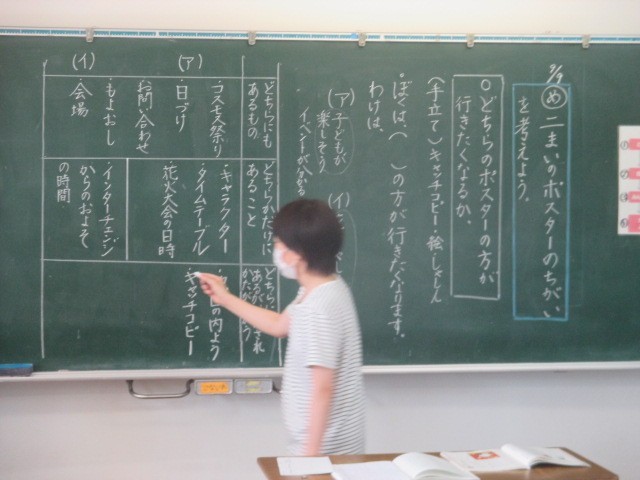 9/9 め 二まいのポスターのちがい
を考えよう。
○どちらのポスターの方が
行きたくなるか。
(手立て)キャッチコピー・絵・しゃしん
・ぼくは、( )の方が行きたくなります。
わけは、
(ア)子どもが
楽しそう
イベントが分かる
(イ)
どちらにも
あるもの
どちらかだけに
あること
どちらにも
あるが
(ア)
・コスモス祭り
・日づけ
お問合わせ
・もよおし
・会場
・キャラクター
・タイムテーブル
・花火大会の日時
(イ)
・インターチェンジ
からのおよそ
の時間
の内よう
・キャッチコピー